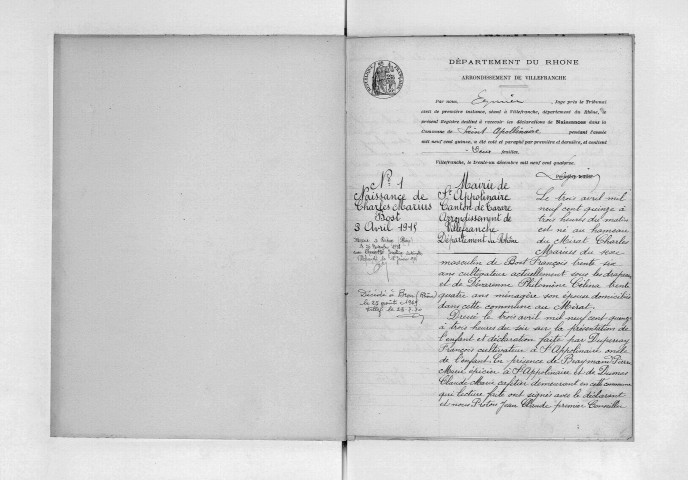 DÉPARTEMENT DU RHONE
ARRONDISSEMENT DE VILLEFRANCHE
Par nous, Juge près le Tribunal
civil de première instance, séant à Villefranche, département du Rhône, le
présent Registre destiné à recevoir les déclarations de Naissances dans la
Commune de Saint Apollinaire pendant l'année
mil neuf cent quinze, a été coté et paraphé par première et dernière, et contient
Deux feuillets.
Villefranche, le trente-un décembre mil neuf cent quatorze.
N° 1
Naissance de
Charles Marius
Bost
3 Avril 1915
Décédé à Bron (Rhône)
le 23 août 1969
Mairie de
St Appolinaire
Canton de Tarare
Arrondissement de
Villefranche
Département du Rhône
Le trois avril mil
neuf cent quinze à
trois heures du matin
est né au hameau
du Mirat, Charles
Marius du sexe
masculin de Bost François trente six
ans cultivateur actuellement sous les drapeaux
et de Divarenne Philomène Célina trente
quatre ans ménagère son épouse domiciliés
dans cette commune au Mirat.
Dressé le trois avril mil neuf cent quinze
à trois heures du soir sur la présentation de
l'enfant et déclaration faite par Duperray
François cultivateur à St Appolinaire oncle
de l'enfant. En présence de Pierre
Marie épicier à St Appolinaire et de Dumas
Claude Marie demeurant en cette commune
qui lecture faite ont signés avec le déclarant
et nous Proton Jean Claude premier Conseiller